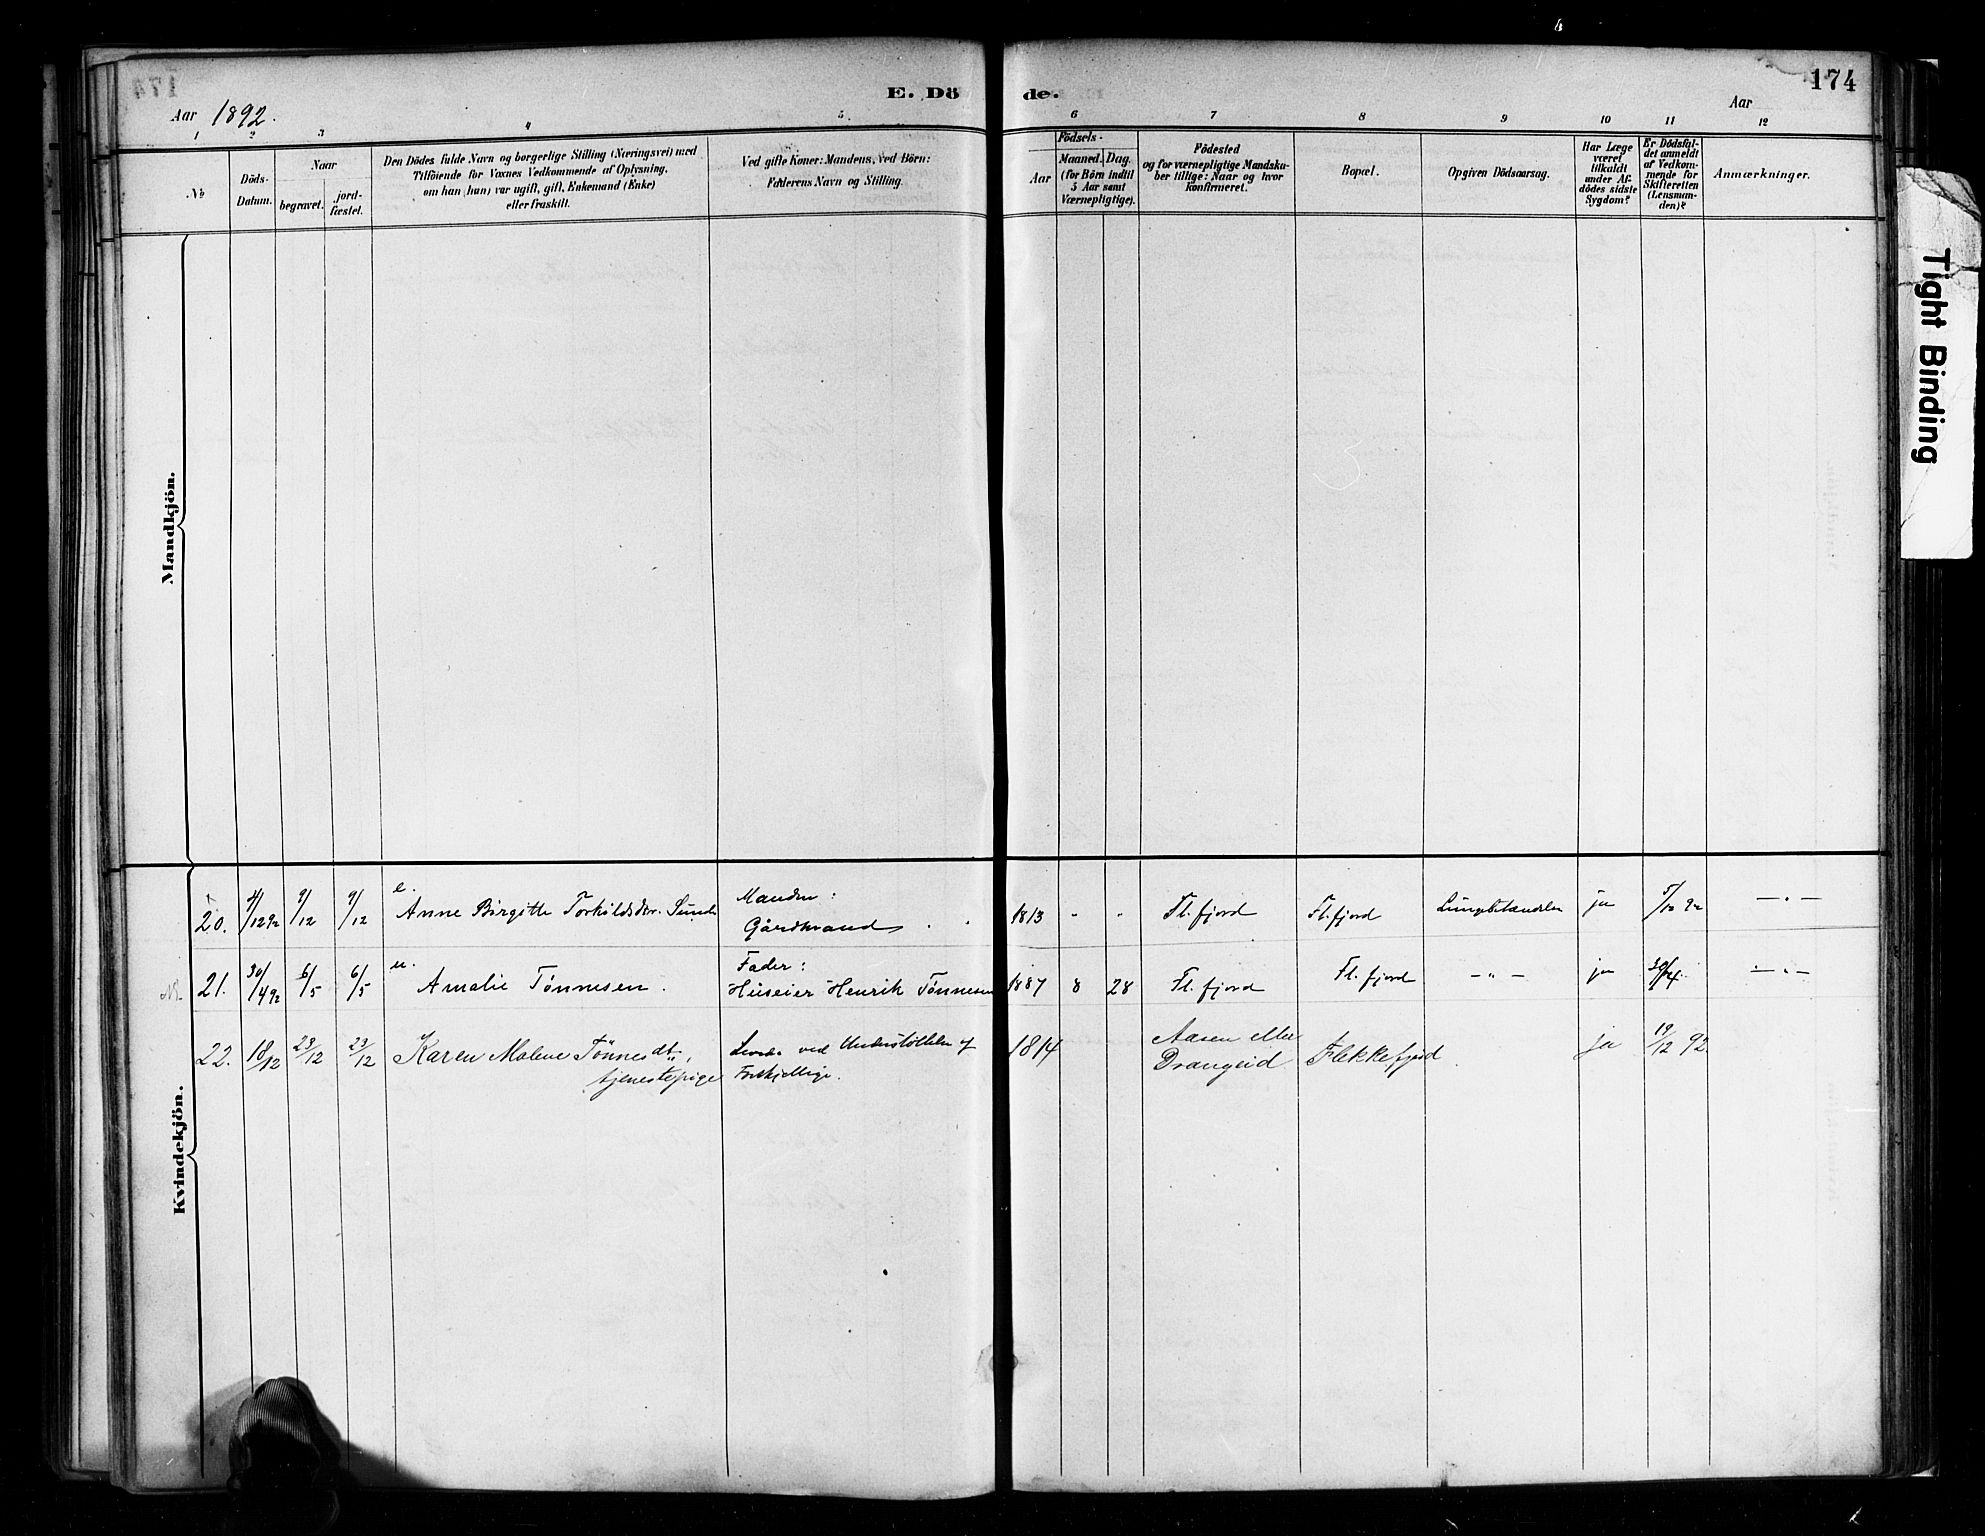 174
E. Döde.
Aar 1892.
Aar
1 2 3 4 5. 6 7 8 9 10 11 12
No
Döds-
Datum.
Naar
begravet.
jord-
fæstet.
Den Dödes fulde Navn og borgerlige Stilling (Næringsvei) med
Tilföiende for Voxnes Vedkommende af Oplysning,
om han (hun) var ugift, gift, Enkemand (Enke)
eller fraskilt.
Ved gifte Koner: Mandens, ved Börn:
Faderens Navn og Stilling.
Födsels-
Aar
Maaned. Dag.
(for Börn indtil
5 Aar samt
Værnepligtige).
Födested
og for værnepligtige Mandsku-
ber tillige: Naar og hvor
konfirmeret.
Bopæl.
Opgiven Dödsaarsag.
Har Læge
været
tilkaldt
under Af-
dödes sidste
Sygdom?
Er Dödsfal-
det anmeldt
af Vedkom-
mende for
Skifteretten
(Lensman-
den)?
Anmærkninger.
Tight Binding
Mandkjön.
Kvindekjön.
20. 4/12 92 9/12 9/12 e. Anne Birgitte Torkildsdtr. Sunde
Manden:
Gårdbrand
1813 " " Fl.fjord Fl.fjord Lungebetændelse ja 5/12 92 — " —
21. 30/4 92 6/5 6/5 u. Amalie Tönnesen.
Fader:
Huseier Henrik Tönnesen
1887 8 28 Fl.fjord Fl.fjord — " — ja 30/4. — " —
22. 18/12 23/12 23/12 Karen Malene Tönnesdt.,
tjenestepige
Levede ved Understöttelse af
Forskjellige.
1814 Aasen eller
Drangeid Flekkefjord. ja 19/12 92